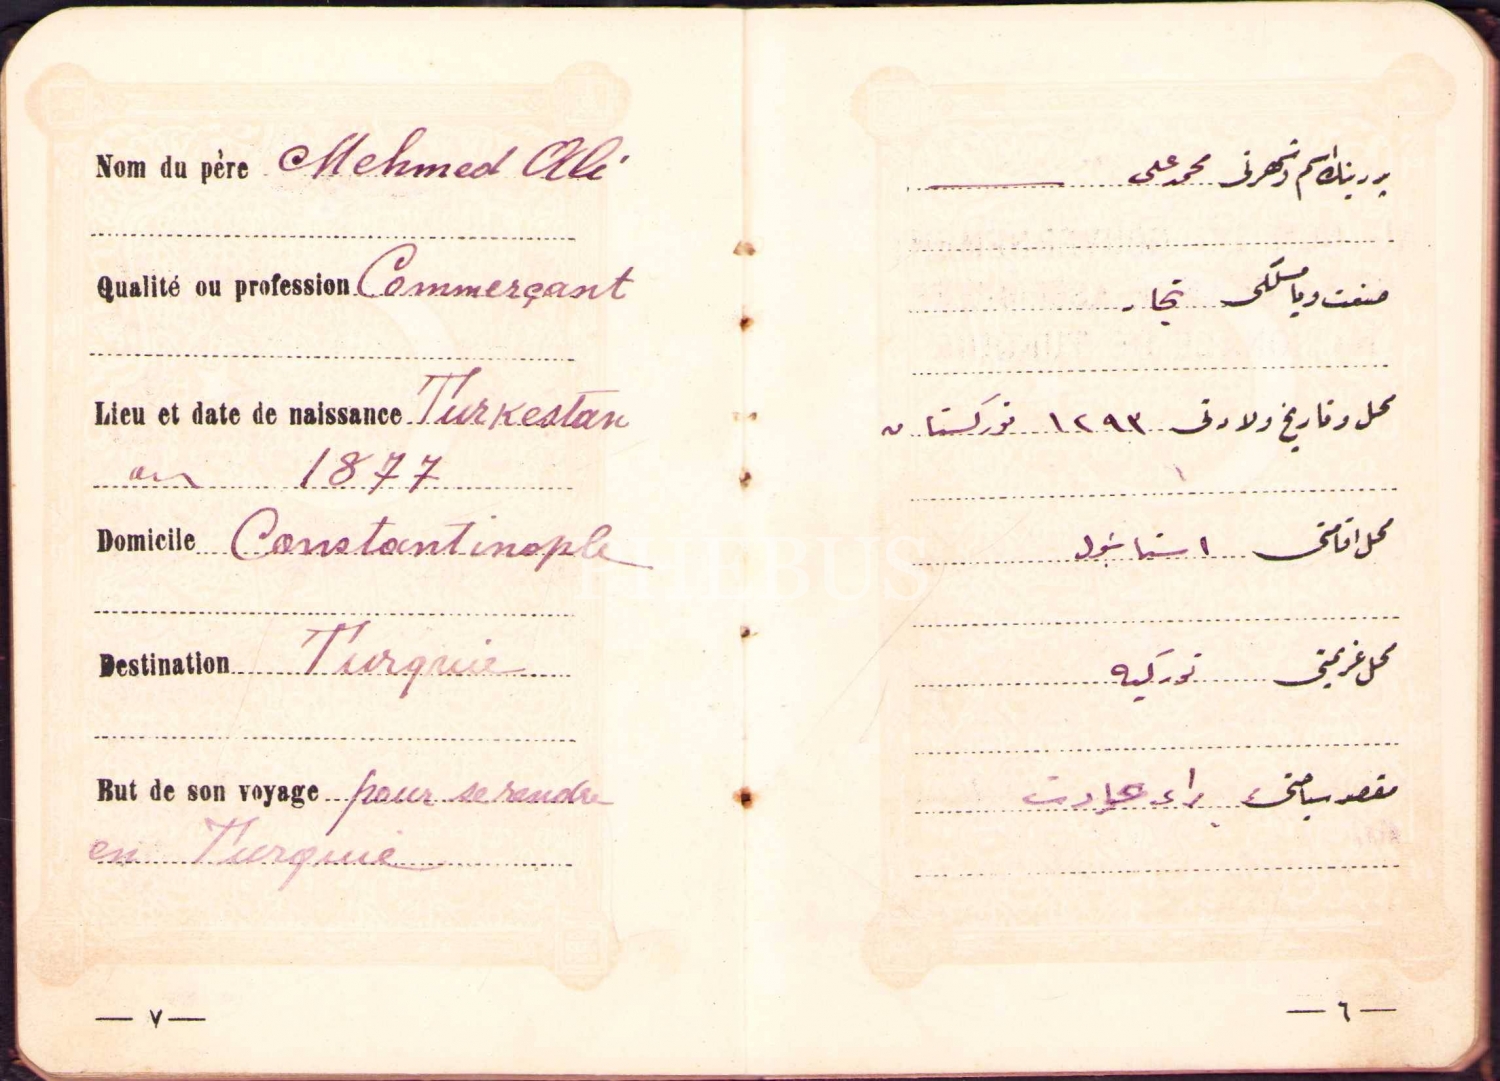 Nom du père Mehmed Ali
Qualité ou profession Commerçant
Lieu et date de naissance Turkestan
en 1877
Domicile Constantinople
Destination Turquie
But de son voyage pour se rendre
en Turquie
— ٧ —
پدرينك اسم و شهرتی محمد علی
صنعت ويا مسلكی تجار
محل و تاريخ ولادتی ١٢٩٣ توركستان
محل اقامتی استانبول
محل عزيمتی توركيه
مقصد سياحتی براى
— ٦ —
PHEBUS